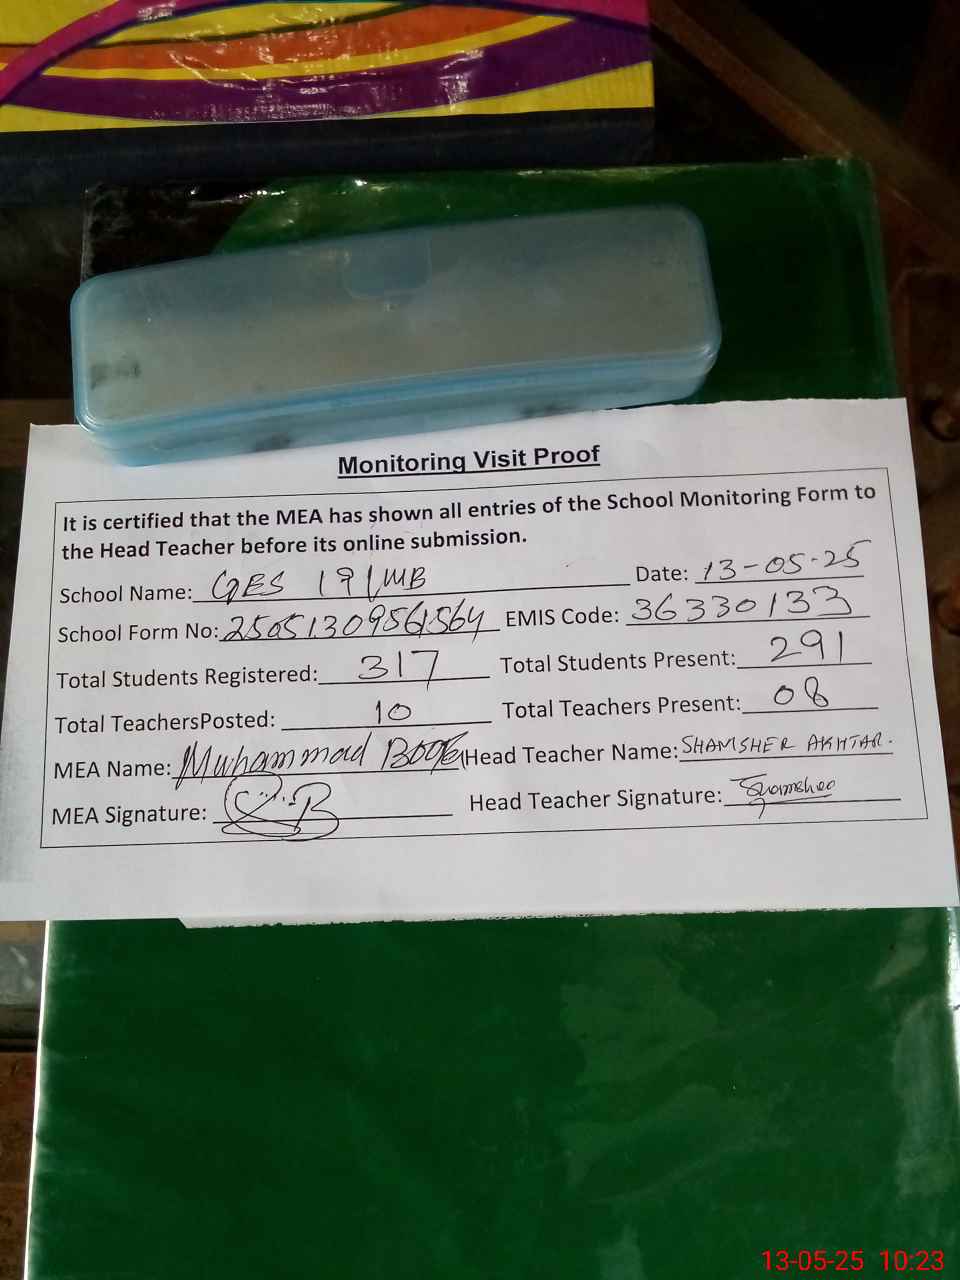 Monitoring Visit Proof
It is certified that the MEA has shown all entries of the School Monitoring Form to
the Head Teacher before its online submission.
School Name: GES 191/MB Date: 13-05-25
School Form No: EMIS Code: 36330133
Total Students Registered: 317 Total Students Present: 291
Total TeachersPosted: 10 Total Teachers Present: 08
MEA Name: Muhammad Head Teacher Name: SHAMSHER AKHTAR.
MEA Signature: Head Teacher Signature: Shamsher
13-05-25 10:23